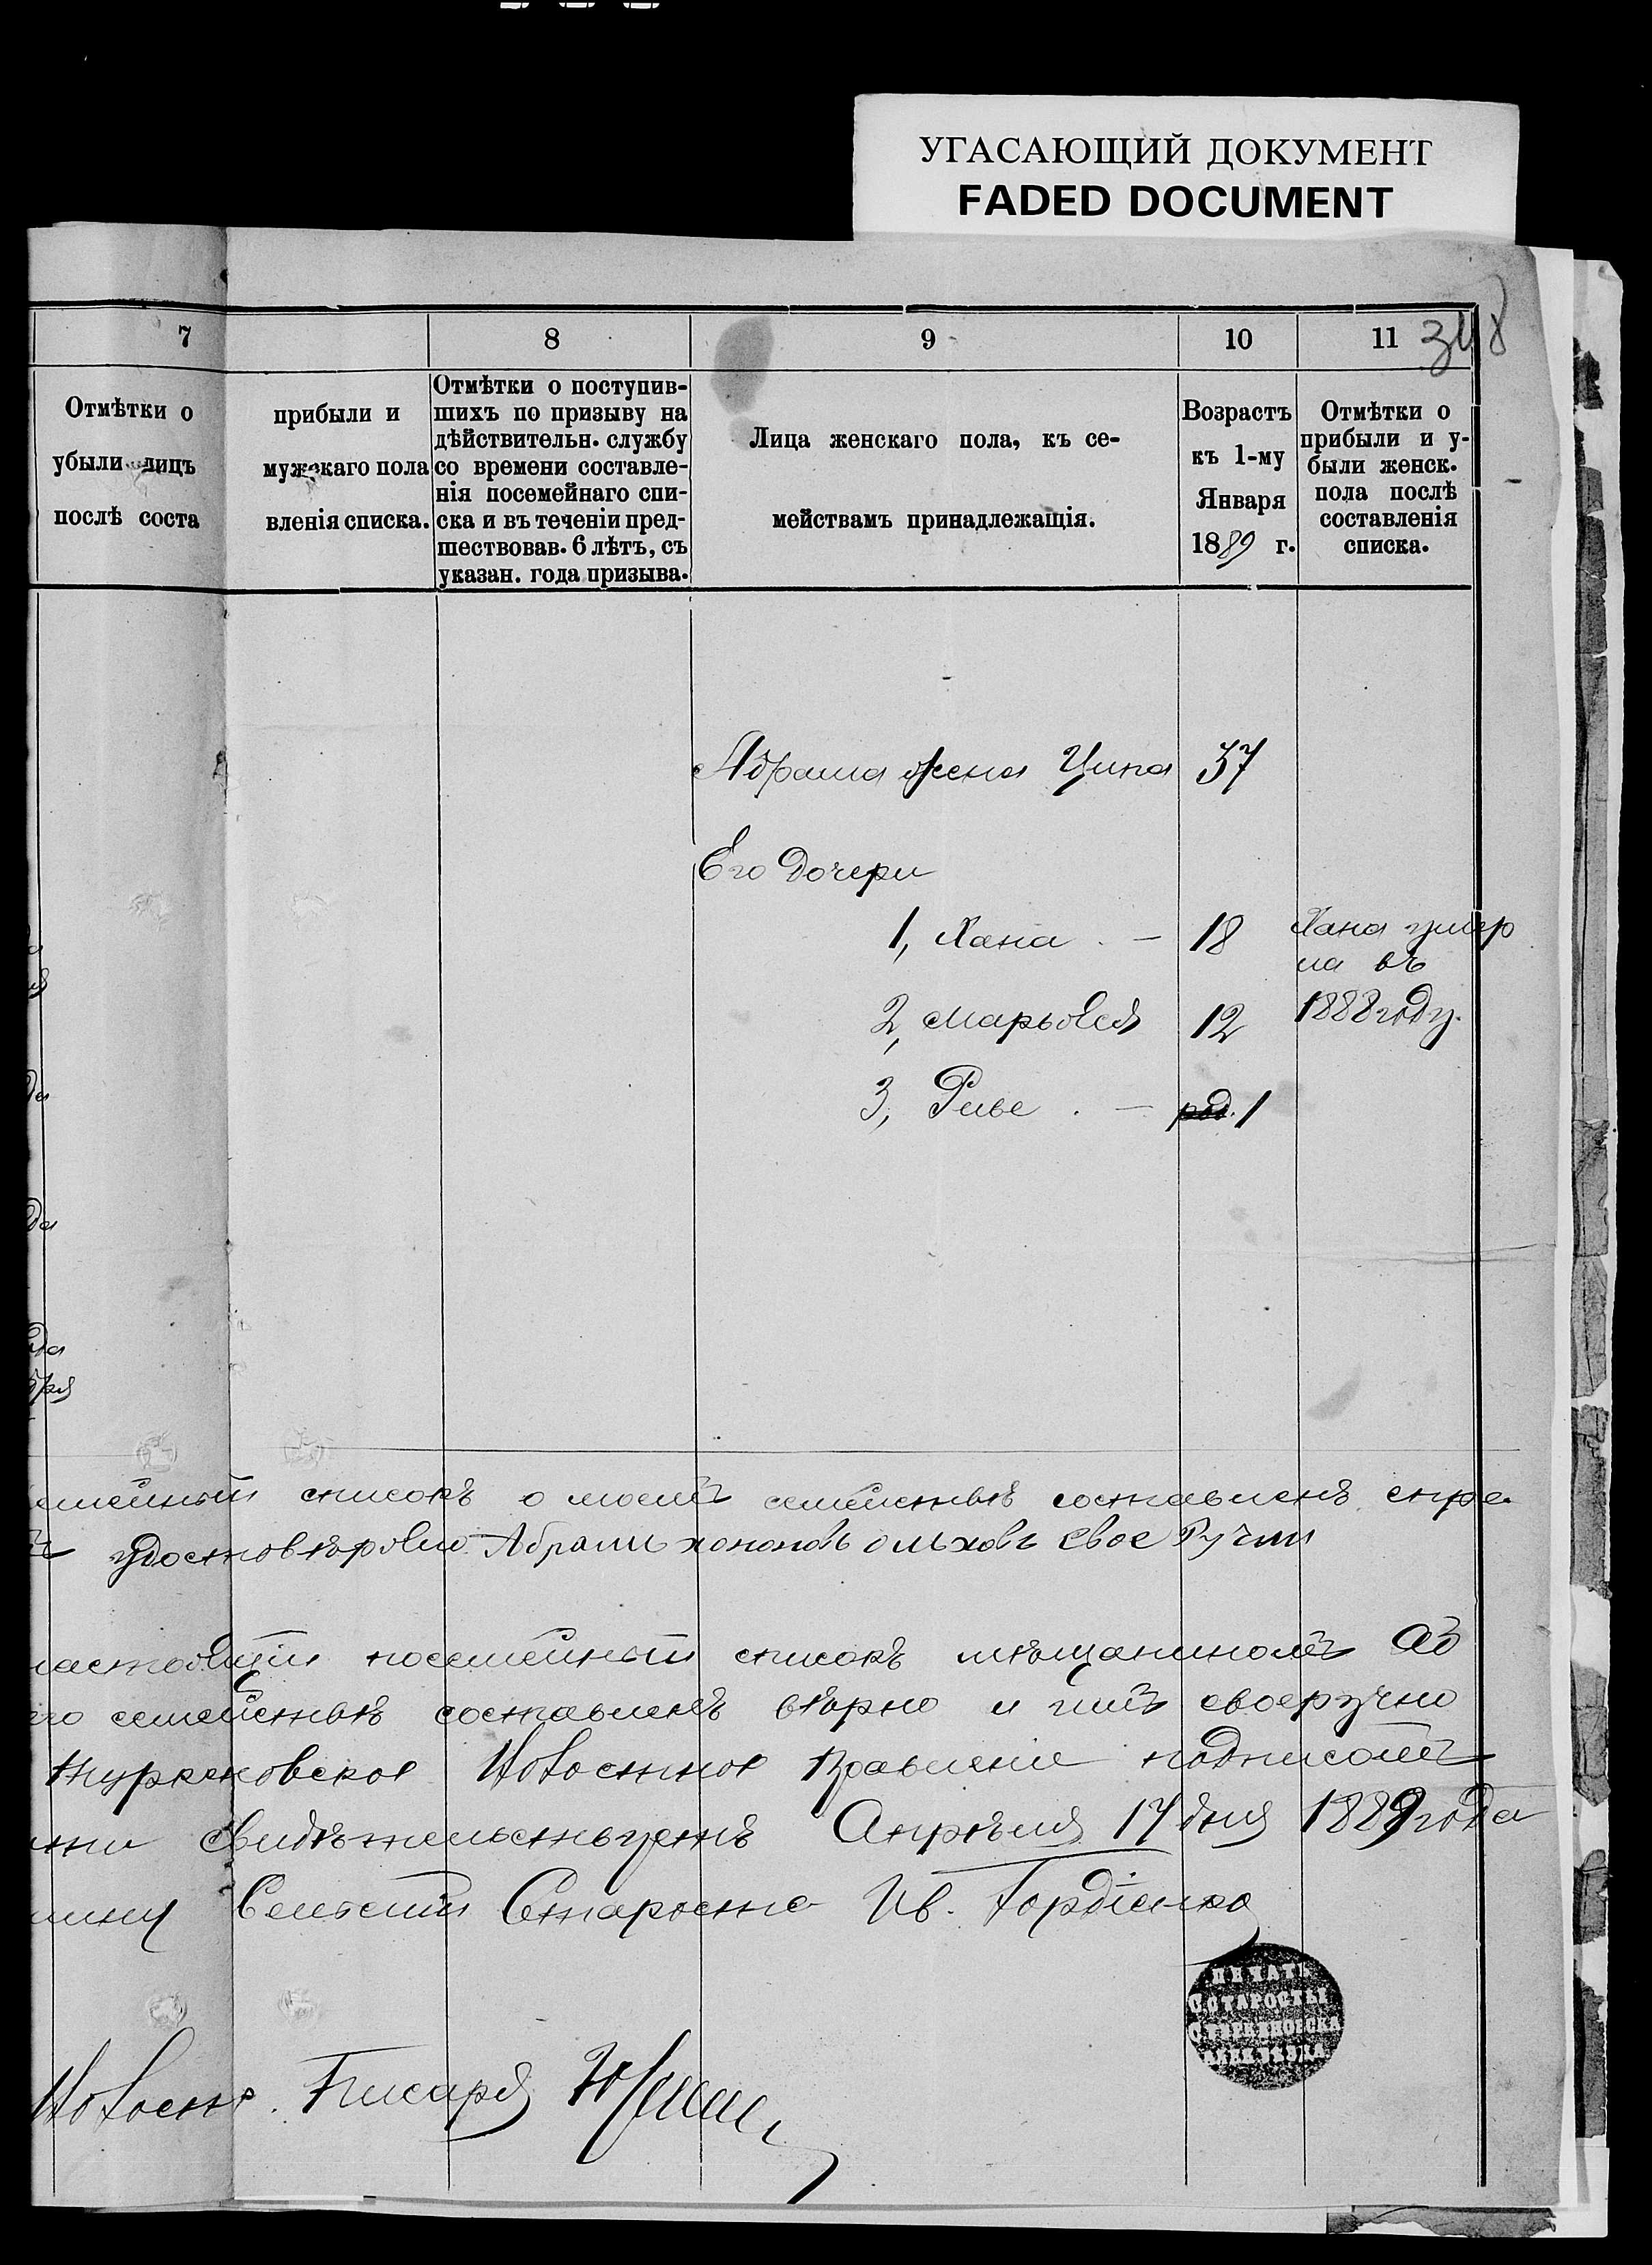 УГАСАЮЩИЙ ДОКУМЕНТ
FADED DOCUMENT
348
7 8 9 10 11
Отмѣтки о прибыли и
убыли лицъ мужскаго пола
послѣ соста вленія списка.
Отмѣтки о поступив-
шихъ по призыву на
дѣйствительн. службу
со времени составле-
нія посемейнаго спи-
ска и въ теченіи пред-
шествовав. 6 лѣтъ, съ
указан. года призыва.
Лица женскаго пола, къ се-
мействамъ принадлежащія.
Возрастъ
къ 1-му
Января
1889 г.
Отмѣтки о
прибыли и у-
были женск.
пола послѣ
составленія
списка.
Абрама жена Ципа 37
Его дочери
1, Хана . — 18 Хана умер
ла въ
2, Марьовся 12 1888 году.
3, Риве . — род. 1
емейный списокъ о моемъ семействѣ составленъ спра-
удостовѣровю Абрамъ хононовъ ольховъ свое Ручни
настоящій посемейный списокъ мѣщаниномъ Аб
его семействѣ составленъ вѣрно и имъ своеручно
Туркеновское Волостное Правленіе подписомъ
свидѣтельствуетъ Апрѣля 17 дня 1889 года
Сельскій Староста Ив. Гордіенко
ПЕЧАТЬ
С. СТАРОСТЫ
Волост. Писарь